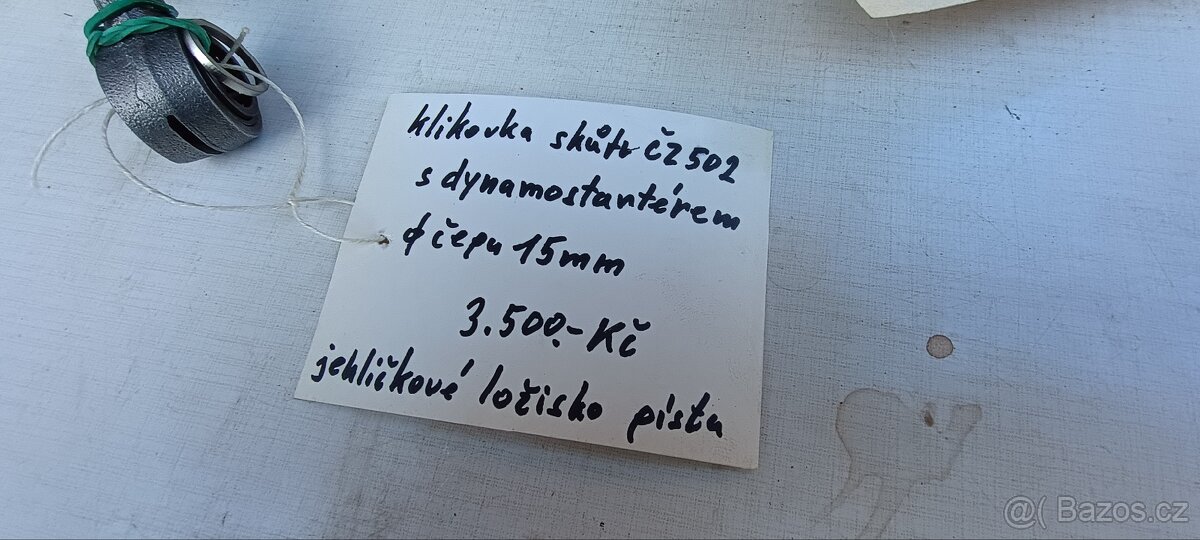 klikovka skůtr ČZ 502
s dynamostartérem
ϕ čepu 15mm
3.500.- Kč
jehličkové ložisko pístu
@( Bazos.cz